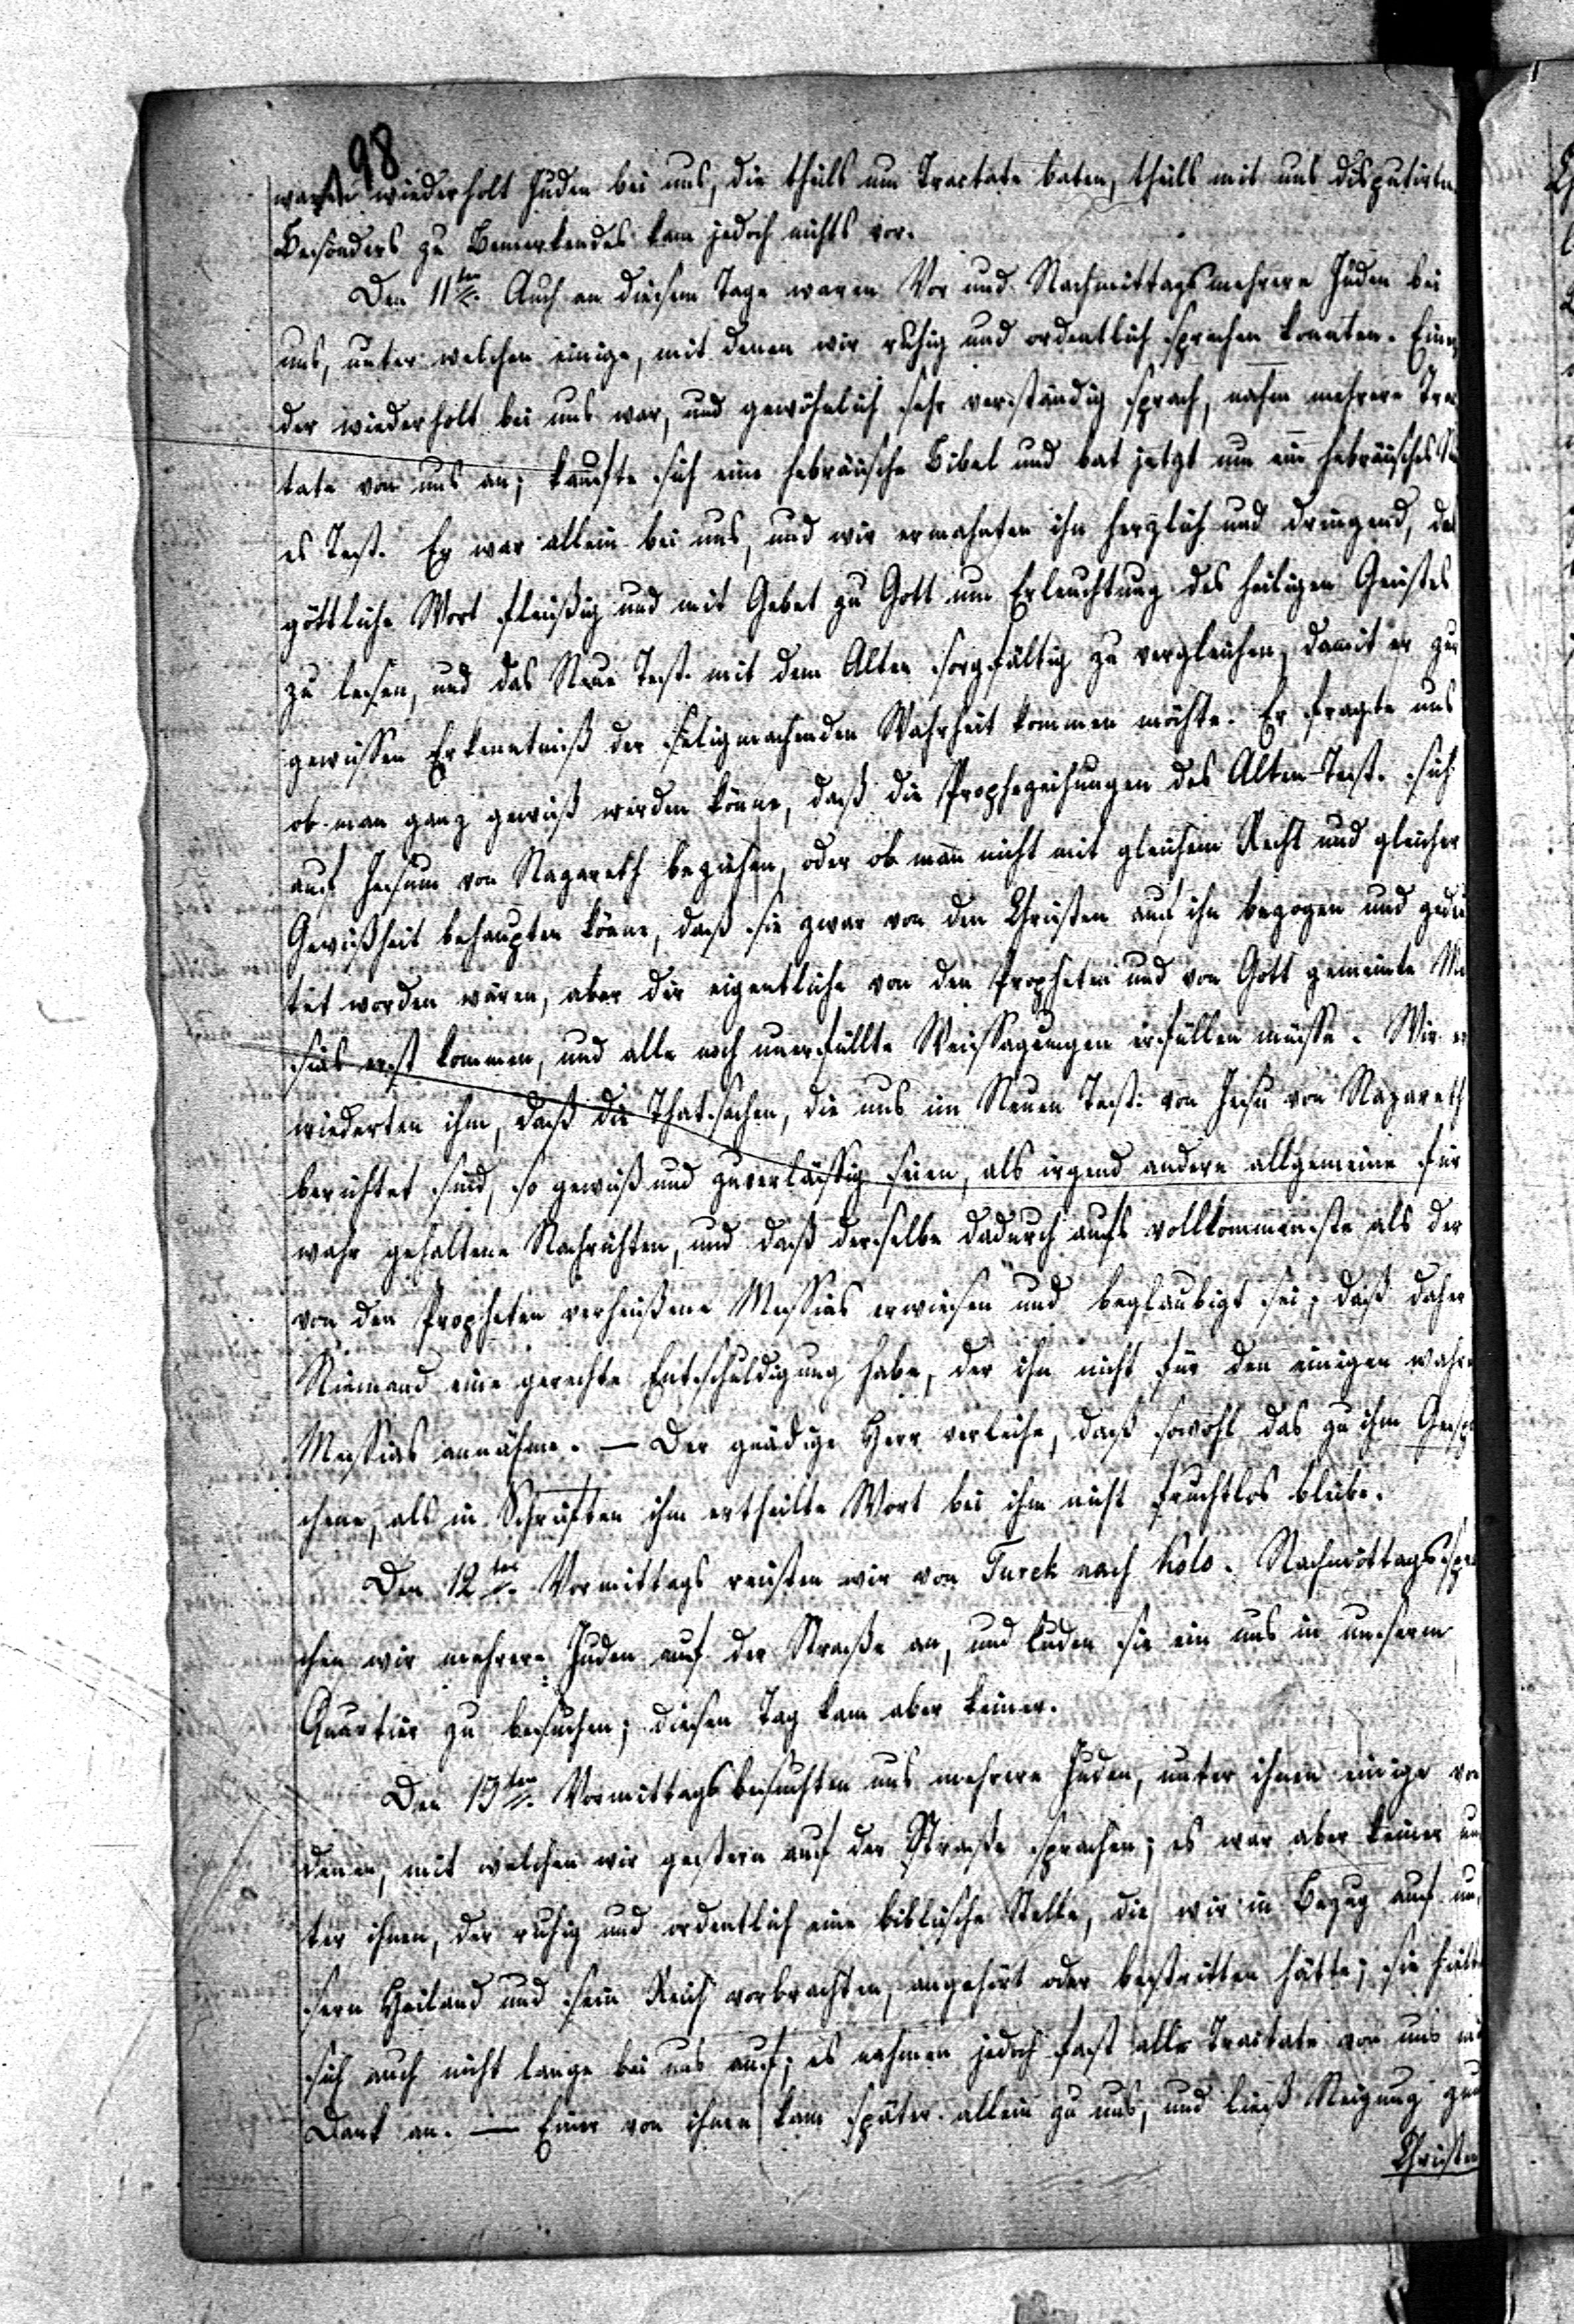 98
waren wiederholt Juden bei uns, die theils um Tractate baten, theils mit uns disputirten
Besonders zu Bemerkendes kam jedoch nichts vor.
Den 11ten Auch an diesem Tage waren Vor und Nachmittags mehrere Juden bei
uns, unter welchen einige, mit denen wir ruhig und ordentlich sprechen konnten. Einer
der wiederholt bei uns war, und gewöhnlich sehr verständig sprach, nahm mehrere Trac
tate von uns an; kaufte sich eine hebräische Bibel und bat jetzt um ein hebräisches Neu
es Test. Er war allein bei uns, und wir ermahnten ihn herzlich und dringend, das
göttliche Wort fleißig und mit Gebet zu Gott um Erleuchtung des heiligen Geistes
zu lesen, und das Neue Test. mit dem Alten sorgfältig zu vergleichen, damit er zur
gewissen Erkenntniß der seligmachenden Wahrheit kommen möchte. Er fragte uns
ob man ganz gewiß werden könne, daß die Prophezeihungen des Alten Test. sich
auf Jesum von Nazareth beziehen, oder ob man nicht mit gleichem Recht und gleicher
Gewißheit behaupten könne, daß sie zwar von den Christen auf ihn bezogen und gedeu
tet worden wären, aber der eigentliche von den Propheten und von Gott gemeinte Mes
sias erst kommen, und alle noch unerfüllte Weissagungen erfüllen müsse. Wir er
wiederten ihm, daß die Thatsachen, die uns im Neuen Test. von Jesu von Nazareth
berichtet sind, so gewiß und zuverlässig seien, als irgend andere allgemeine für
wahr gehaltene Nachrichten, und daß derselbe dadurch aufs vollkommenste als der
von den Propheten verheißene Messias erwiesen und beglaubigt sei; daß daher
Niemand eine gerechte Entschuldigung habe, der ihn nicht für den einigen wahren
Messias annähme. — Der gnädige Herr verleihe, daß sowohl das zu ihm Gespro
chene, als in Schriften ihm ertheilte Wort bei ihm nicht fruchtlos bleibe.
Den 12ten Vormittags reisten wir von Turek nach Kolo. Nachmittags spra
chen wir mehrere Juden auf der Straße an, und luden sie ein uns in unserm
Quartier zu besuchen; diesen Tag kam aber keiner.
Den 13ten Vormittags besuchten uns mehrere Juden, unter ihnen einige von
denen, mit welchen wir gestern auf der Straße sprachen; es war aber keiner un
ter ihnen, der ruhig und ordentlich eine biblische Stelle, die wir in Bezug auf un
sern Heiland und sein Reich vorbrachten, angehört oder bestritten hätte; sie hielten
sich auch nicht lange bei uns auf; es nahmen jedoch fast alle Tractate von uns mit
Dank an. — Einer von ihnen kam später allein zu uns, und ließ Neigung zum
Christen